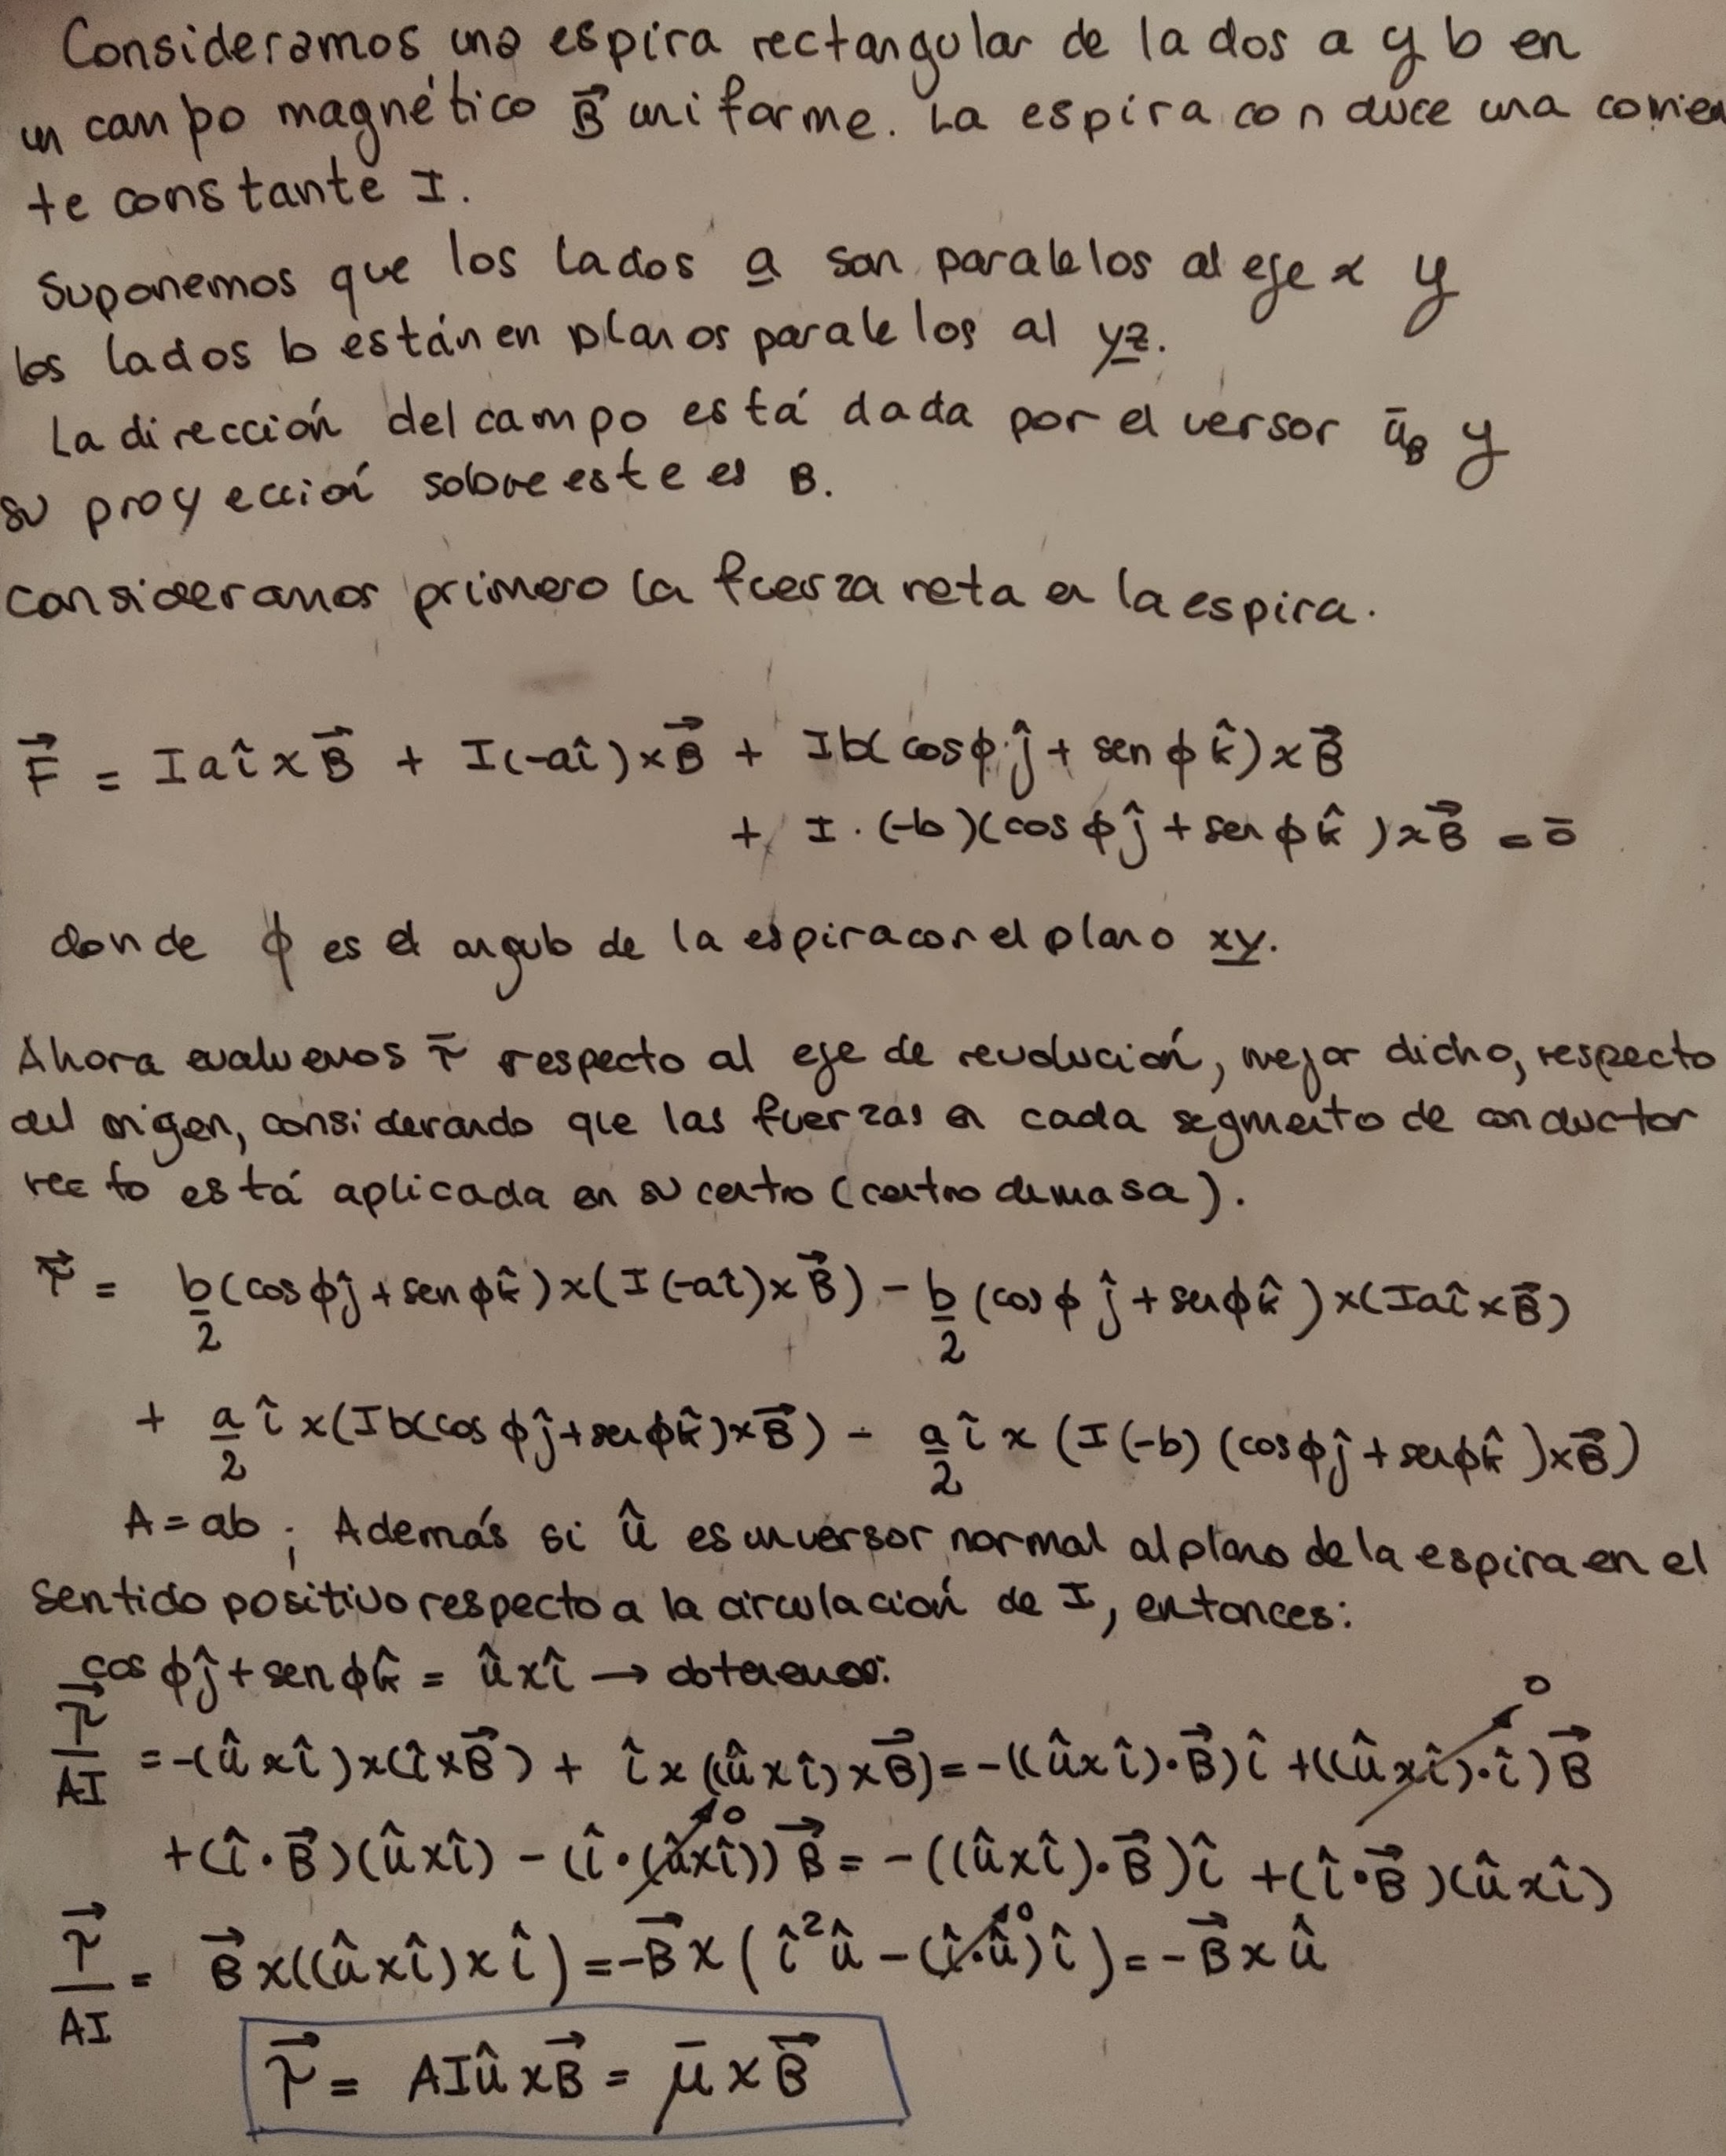 Consideramos una espira rectangular de lados a y b en
un campo magnético B⃗ uniforme. La espira conduce una corrien
te constante I.
Suponemos que los lados a son paralelos al eje x y
los lados b están en planos paralelos al yz.
La dirección del campo está dada por el versor ū_B y
su proyección sobre este es B.
Consideramos primero la fuerza neta en la espira.
F⃗ = Iaî×B⃗ + I(-aî)×B⃗ + Ib(cosϕĵ + senϕk̂)×B⃗
+ I·(-b)(cosϕĵ + senϕk̂)×B⃗ = ō
donde ϕ es el angulo de la espira con el plano xy.
Ahora evaluemos τ̄ respecto al eje de revolución, mejor dicho, respecto
del origen, considerando que las fuerzas en cada segmento de conductor
recto está aplicada en su centro (centro de masa).
τ⃗ = b/2 (cosϕĵ + senϕk̂)×(I(-aî)×B⃗) - b/2 (cosϕĵ + senϕk̂)×(Iaî×B⃗)
+ a/2 î×(Ib(cosϕĵ+senϕk̂)×B⃗) - a/2 î×(I(-b)(cosϕĵ+senϕk̂)×B⃗)
A = ab ; Además si û es un versor normal al plano de la espira en el
sentido positivo respecto a la circulación de I, entonces:
cosϕĵ + senϕk̂ = û×î → obtenemos:
τ⃗/AI = -(û×î)×(î×B⃗) + î×((û×î)×B⃗) = -((û×î)·B⃗)î + ((û×î)·î)B⃗ 0
+(î·B⃗)(û×î) - (î·(û×î))B⃗ 0 = -((û×î)·B⃗)î + (î·B⃗)(û×î)
τ⃗/AI = B⃗×((û×î)×î) = -B⃗×(î²û - (î·û)î) 0 = -B⃗×û
τ⃗ = AIû×B⃗ = μ̄×B⃗